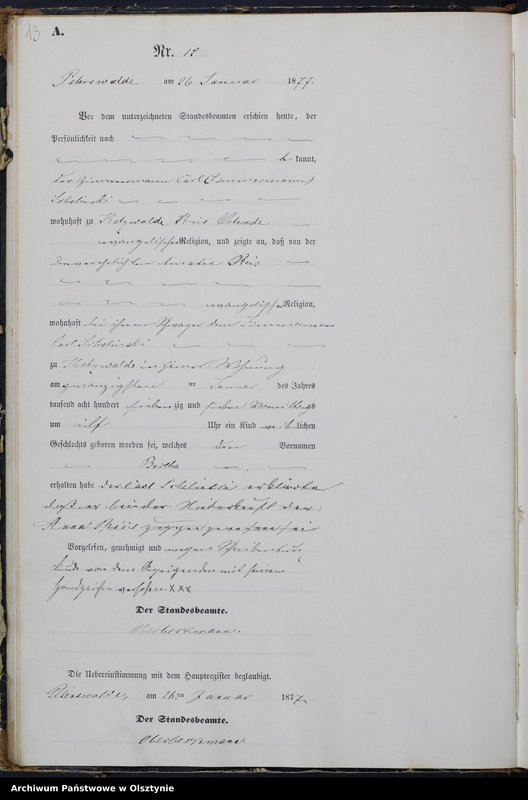 13 A.
Nr. 12
Peterswalde am 26 Januar 1877.
Vor dem unterzeichneten Standesbeamten erschien heute, der
Persönlichkeit nach
kannt,
der Zimmermann Carl
wohnhaft zu Kreis Osterode
evangelischer Religion, und zeigte an, daß von der
unverehelichten Amalie
evangelischer Religion,
wohnhaft bei ihrem Schwager dem Zimmermann
Carl
zu in seiner Wohnung
am zwanzigsten ten Januar des Jahres
tausend acht hundert siebenzig und sieben Vormittags
um elf Uhr ein Kind weiblichen
Geschlechts geboren worden sei, welches den Vornamen
Bertha
erhalten habe der Carl erklärte
daß er bei der Niederkunft der
zugegen gewesen sei
Vorgelesen, genehmigt und wegen Schreibensun-
kunde von dem Anzeigenden mit seinem
Handzeichen versehen XXX
Der Standesbeamte.
Die Uebereinstimmung mit dem Hauptregister beglaubigt.
Peterswalde, am 26ten Januar 1877
Der Standesbeamte.
Archiwum Państwowe w Olsztynie